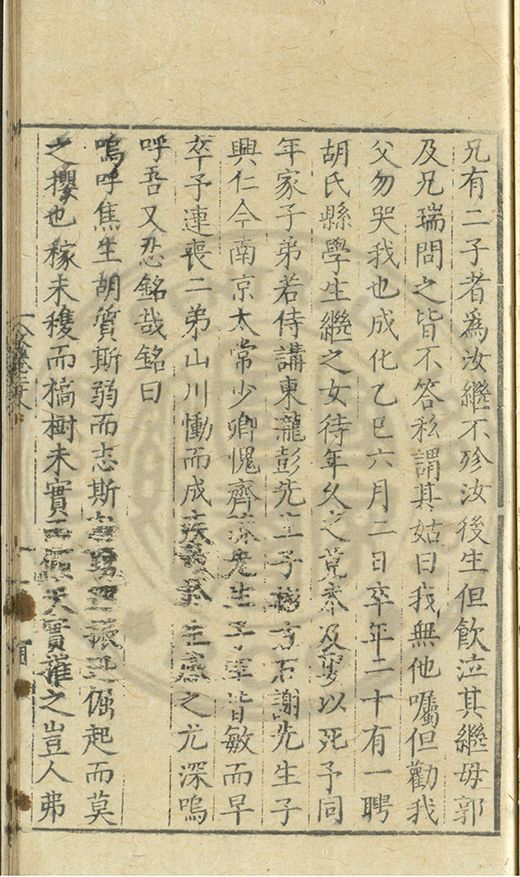 兄有二子者爲汝繼不殄汝後生但飲泣其繼母郭
及兄瑞問之皆不答私謂其姑曰我無他囑但勸我
父勿哭我也成化乙巳六月二日卒年二十有一聘
胡氏縣學生繼之女待年久之竟不及娶以死予同
年家子弟若侍講東瀧彭先生子彦方石謝先生子
興仁今南京太常少卿愧齊陳先生子宰皆敏而早
卒予連喪二弟山川慟而成疾之尤深嗚
呼吾又忍銘哉銘曰
嗚呼焦生胡質斯弱而志斯倔起而莫
之攖也稼未穫而槁樹未實天實摧之豈人弗